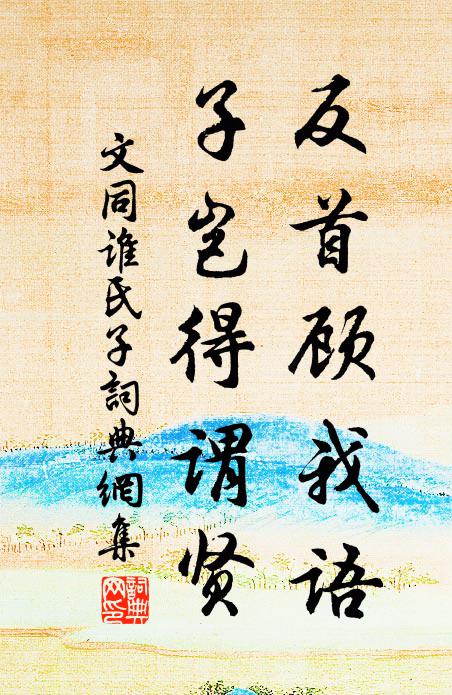 反首顾我语
子岂得谓贤
文同谁氏子詞典網集
詞典